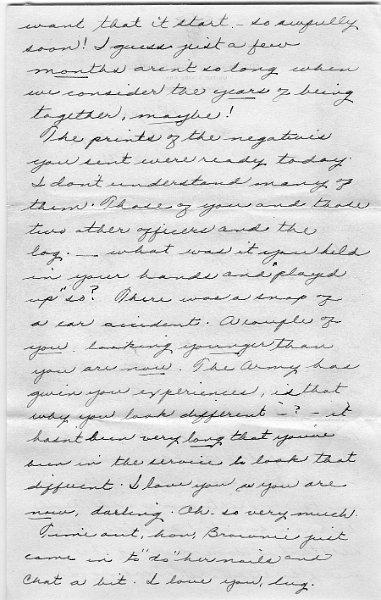 want that it start - so awfully
soon! I guess just a few
months aren't so long when
we consider the years of being
together, maybe!
The prints of the negatives
you sent were ready today.
I don't understand many of
them. Those of you and those
two other officers and the
log. - what was it you held
in your hands and "played
up" so? There was a snap of
a car accident. A couple of
you looking younger than
you are now. The Army has
given you experiences, is that
why you look different -?- it
hasn't been very long that you've
been in the service to look that
different. I love you as you are
now, darling. Oh. so very much.
Time out, hon, Brownie just
came in to "do" her nails and
chat a bit. I love you, lug.